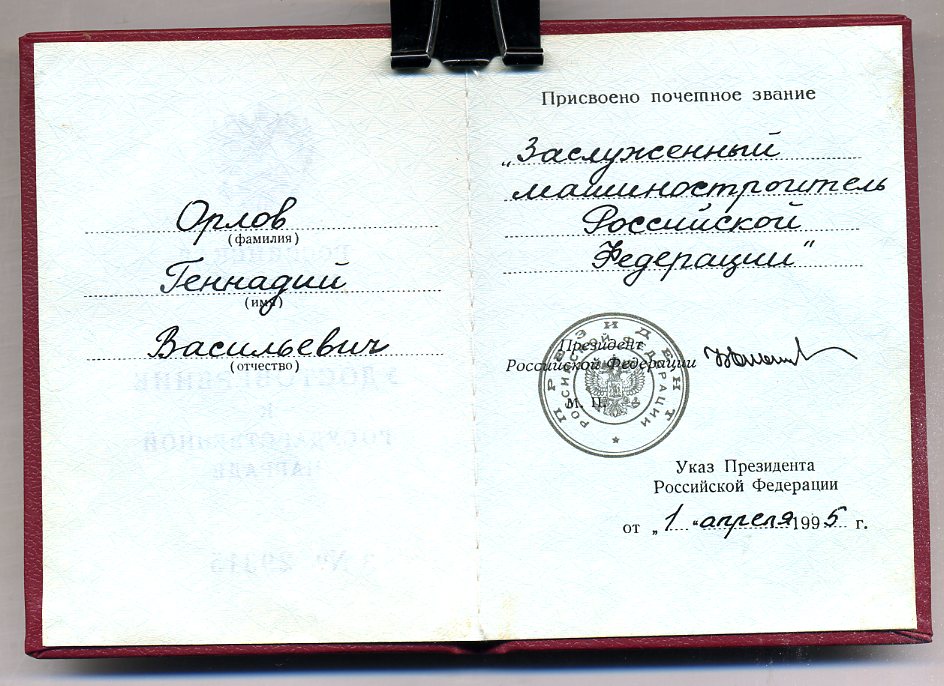 Орлов
(фамилия)
Геннадий
(имя)
Васильевич
(отчество)
Присвоено почетное звание
„Заслуженный
машиностроитель
Российской
Федерации"
Президент
Российской Федерации
М. П.
ПРЕЗИДЕНТ
РОССИЙСКОЙ ФЕДЕРАЦИИ
Указ Президента
Российской Федерации
от „1" апреля 1995 г.